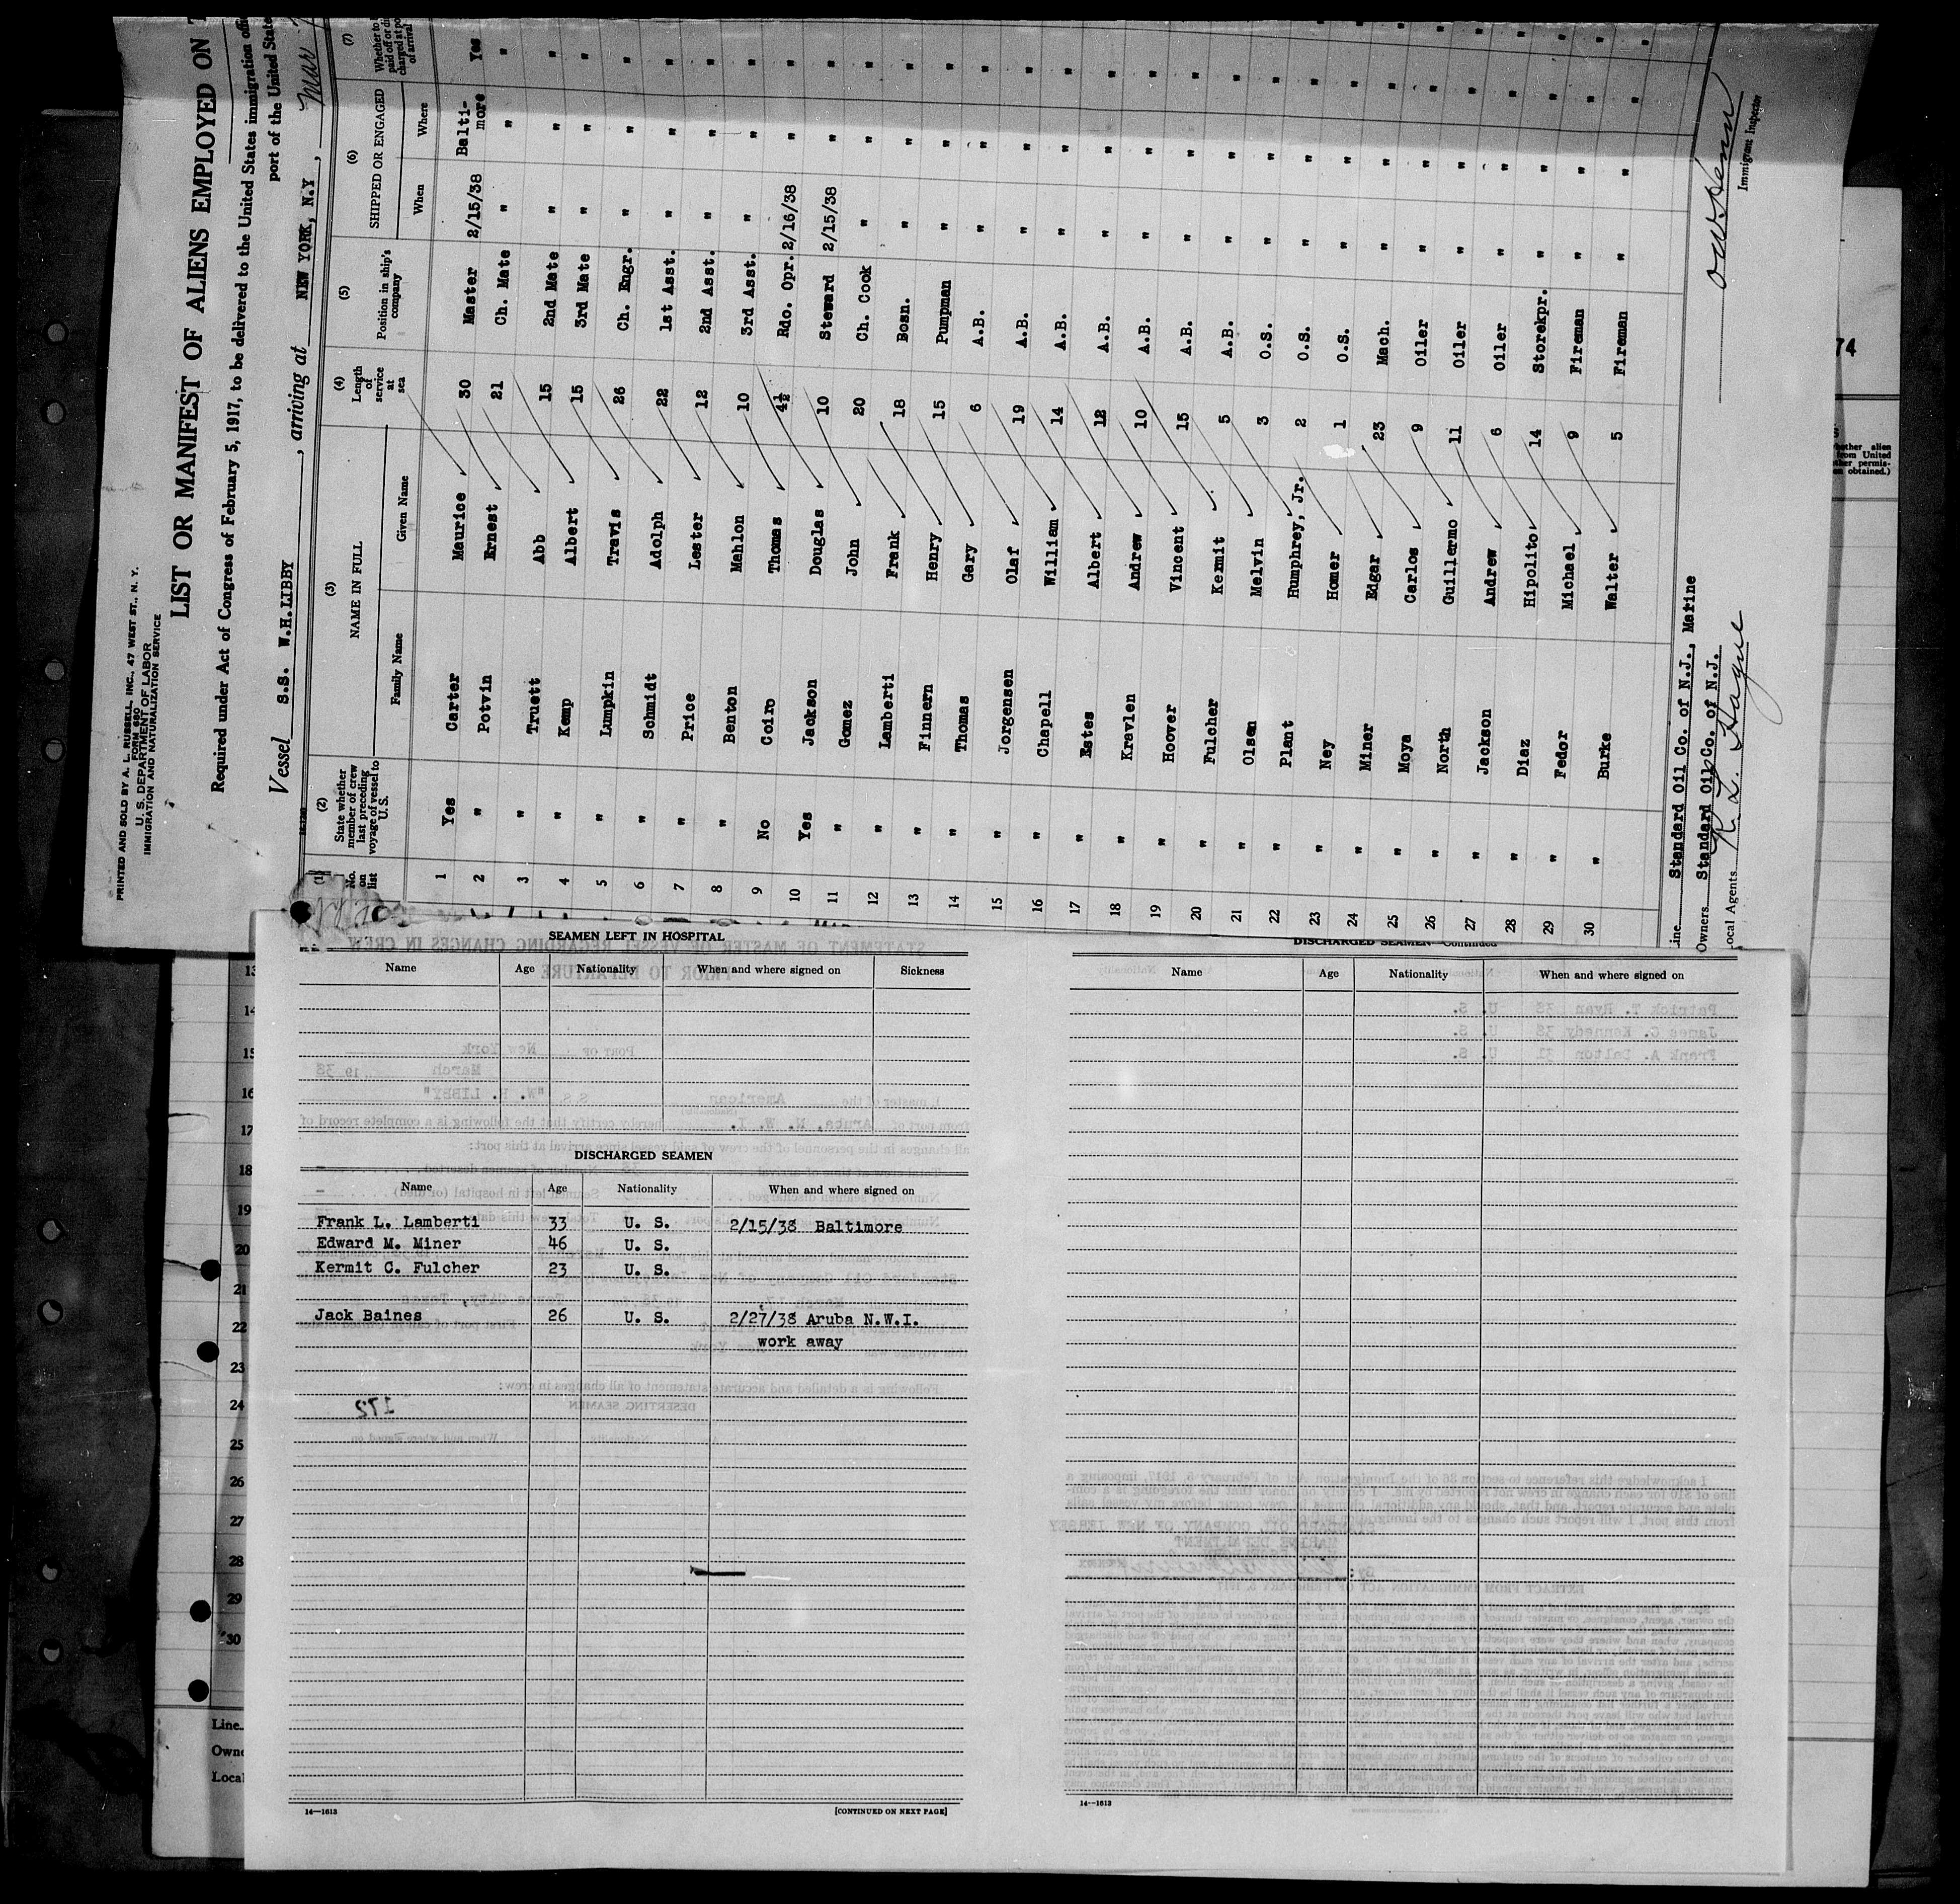 PRINTED AND SOLD BY A. L. RUSSELL, INC., 47 WEST ST., N. Y.
FORM 680
U. S. DEPARTMENT OF LABOR
IMMIGRATION AND NATURALIZATION SERVICE
LIST OR MANIFEST OF ALIENS EMPLOYED ON
Required under Act of Congress of February 5, 1917, to be delivered to the United States immigration
port of the United
Vessel S.S. W.H.LIBBY, arriving at NEW YORK, N.Y, Mar
(1) No. on list (2) State whether member of crew last preceding voyage of vessel to U.S. (3) NAME IN FULL Family Name Given Name (4) Length of service at sea (5) Position in ship's company (6) SHIPPED OR ENGAGED When Where (7) Whether to paid off or charged at port of arrival
1 Yes Carter Maurice 30 Master 2/15/38 Balti-more Yes
2 " Potvin Ernest 21 Ch. Mate " " "
3 " Truett Abb 15 2nd Mate " " "
4 " Kemp Albert 15 3rd Mate " " "
5 " Lumpkin Travis 26 Ch. Engr. " " "
6 " Schmidt Adolph 22 1st Asst. " " "
7 " Price Lester 12 2nd Asst. " " "
8 " Benton Mahlon 10 3rd Asst. " " "
9 No Coiro Thomas 4½ Rdo. Opr. 2/16/38 " "
10 Yes Jackson Douglas 10 Steward 2/15/38 " "
11 " Gomez John 20 Ch. Cook " " "
12 " Lamberti Frank 18 Bosn. " " "
13 " Finnern Henry 15 Pumpman " " "
14 " Thomas Gary 6 A.B. " " "
15 " Jorgensen Olaf 19 A.B. " " "
16 " Chapell William 14 A.B. " " "
17 " Estes Albert 12 A.B. " " "
18 " Kravlen Andrew 10 A.B. " " "
19 " Hoover Vincent 15 A.B. " " "
20 " Fulcher Kermit 5 A.B. " " "
21 " Olsen Melvin 3 O.S. " " "
22 " Plant Humphrey, Jr. 2 O.S. " " "
23 " Ney Homer 1 O.S. " " "
24 " Miner Edgar 23 Mach. " " "
25 " Moya Carlos 9 Oiler " " "
26 " North Guillermo 11 Oiler " " "
27 " Jackson Andrew 6 Oiler " " "
28 " Diaz Hipolito 14 Storekpr. " " "
29 " Fedor Michael 9 Fireman " " "
30 " Burke Walter 5 Fireman " " "
Line Standard Oil Co. of N.J., Marine
Owners Standard Oil Co. of N.J.
Local Agents
Immigrant Inspector
74
SEAMEN LEFT IN HOSPITAL
Name Age Nationality When and where signed on Sickness
DISCHARGED SEAMEN
Name Age Nationality When and where signed on
Frank L. Lamberti 33 U. S. 2/15/38 Baltimore
Edward M. Miner 46 U. S.
Kermit C. Fulcher 23 U. S.
Jack Baines 26 U. S. 2/27/38 Aruba N.W.I.
work away
172
14—1613 [CONTINUED ON NEXT PAGE]
DISCHARGED SEAMEN—Continued
Name Age Nationality When and where signed on
14—1613
13
14
15
16
17
18
19
20
21
22
23
24
25
26
27
28
29
30
Line
Local